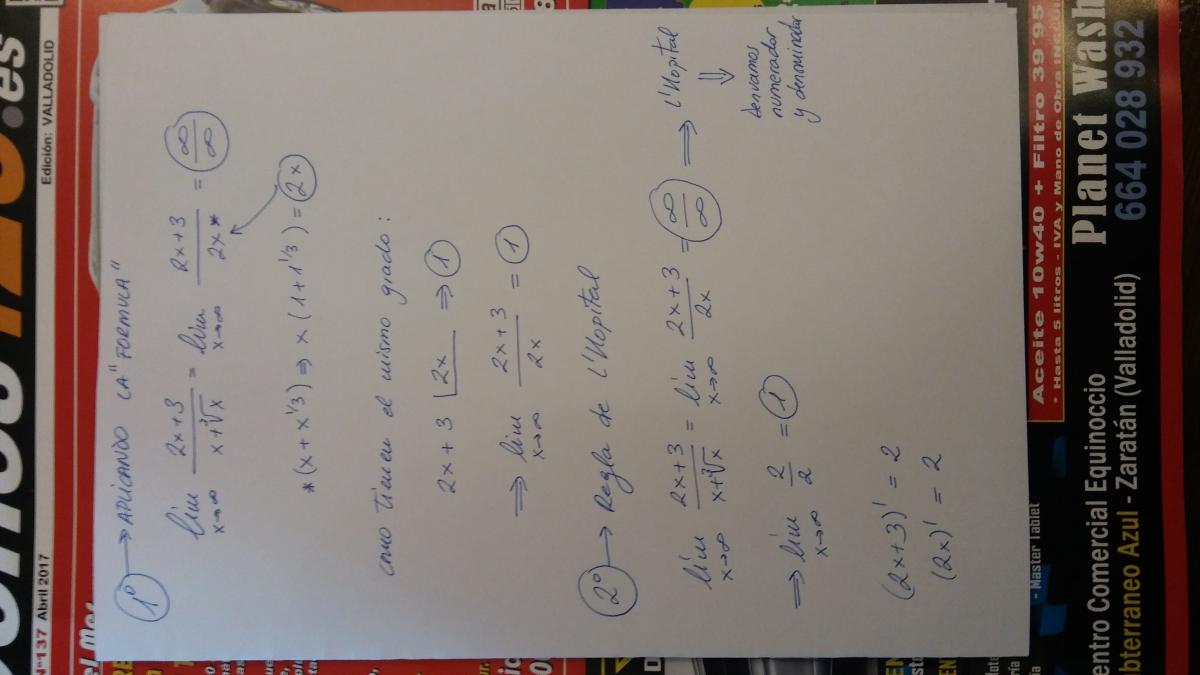 1º → APLICANDO LA "FORMULA"
lim x→∞ (2x+3)/(x+∛x) = lim x→∞ (2x+3)/(2x*) = ∞/∞
*(x + x^1/3) ⇒ x (1+1^1/3) = 2x
como tienen el mismo grado:
2x + 3 | 2x ⇒ 1
⇒ lim x→∞ (2x+3)/(2x) = 1
2º → Regla de l'Hopital
lim x→∞ (2x+3)/(x+∛x) = lim x→∞ (2x+3)/(2x) = ∞/∞ ⇒ l'Hopital
⇓
derivamos
numerador
y denominador
⇒ lim x→∞ 2/2 = 1
(2x+3)' = 2
(2x)' = 2
Nº137 Abril 2017
Edición: VALLADOLID
.es
Aceite 10w40 + Filtro 39'95
* Hasta 5 litros - IVA y Mano de Obra
Planet Wash
664 028 932
entro Comercial Equinoccio
bterraneo Azul - Zaratán (Valladolid)
- Master Tablet